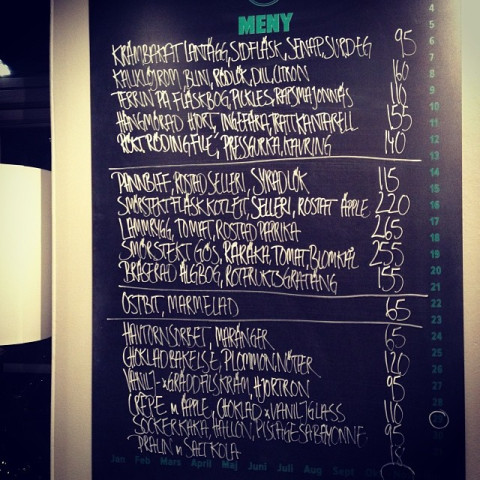 MENY
KRÄMBAKAT LANTÄGG, SIDFLÄSK, SENAP, SURDEG 95
KALIXLÖJROM, BLINI, RÖDLÖK, DILL, CITRON 160
TERRIN PÅ FLÄSKBOG, PICKLES, RAPSMAJONNÄS 110
HÄNGMÖRAD HJORT, INGEFÄRA, TRATTKANTARELL 155
RÖKT RÖDINGFILÉ, PRESSGURKA, KAVRING 140
PANNBIFF, ROSTAD SELLERI, SYRAD LÖK 115
SMÖRSTEKT FLÄSKKOTLETT, SELLERI, ROSTAT ÄPPLE 220
LAMMRYGG, TOMAT, ROSTAD PAPRIKA 265
SMÖRSTEKT GÖS, RÅRAKA, TOMAT, BLOMKÅL 255
BRÄSERAD ÄLGBOG, ROTFRUKTSGRATÄNG 155
OSTBIT, MARMELAD 65
HAVTORNSORBET, MARÄNGER 65
CHOKLADBAKELSE, PLOMMON, NÖTTER 120
VANILJ- & GRÄDDFILSKRÄM, HJORTRON 95
CRÊPE M ÄPPLE, CHOKLAD & VANILJGLASS 110
SOCKERKAKA, HALLON, PISTAGESABAYONNE 95
PRALIN M SALT KOLA
4
5
6
7
8
9
10
11
12
13
14
15
16
17
18
19
20
21
22
23
24
25
26
27
28
Jan Feb Mars April Maj Juni Juli Aug Sept